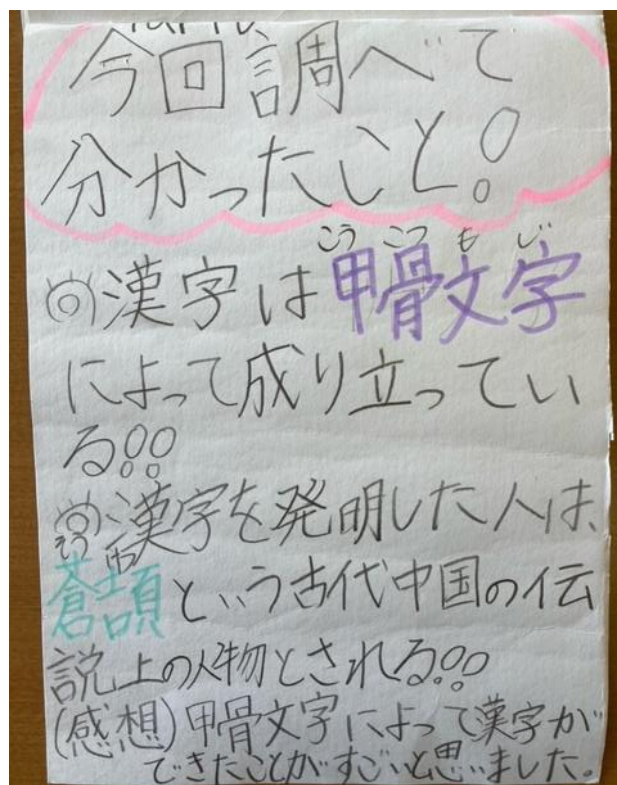 今回調べて
分かったこと!
こうこつもじ
◎漢字は甲骨文字
によって成り立ってい
る!!
◎漢字を発明した人は、
そう
蒼頡という古代中国の伝
説上の人物とされる!!
(感想)甲骨文字によって漢字が
できたことがすごいと思いました。